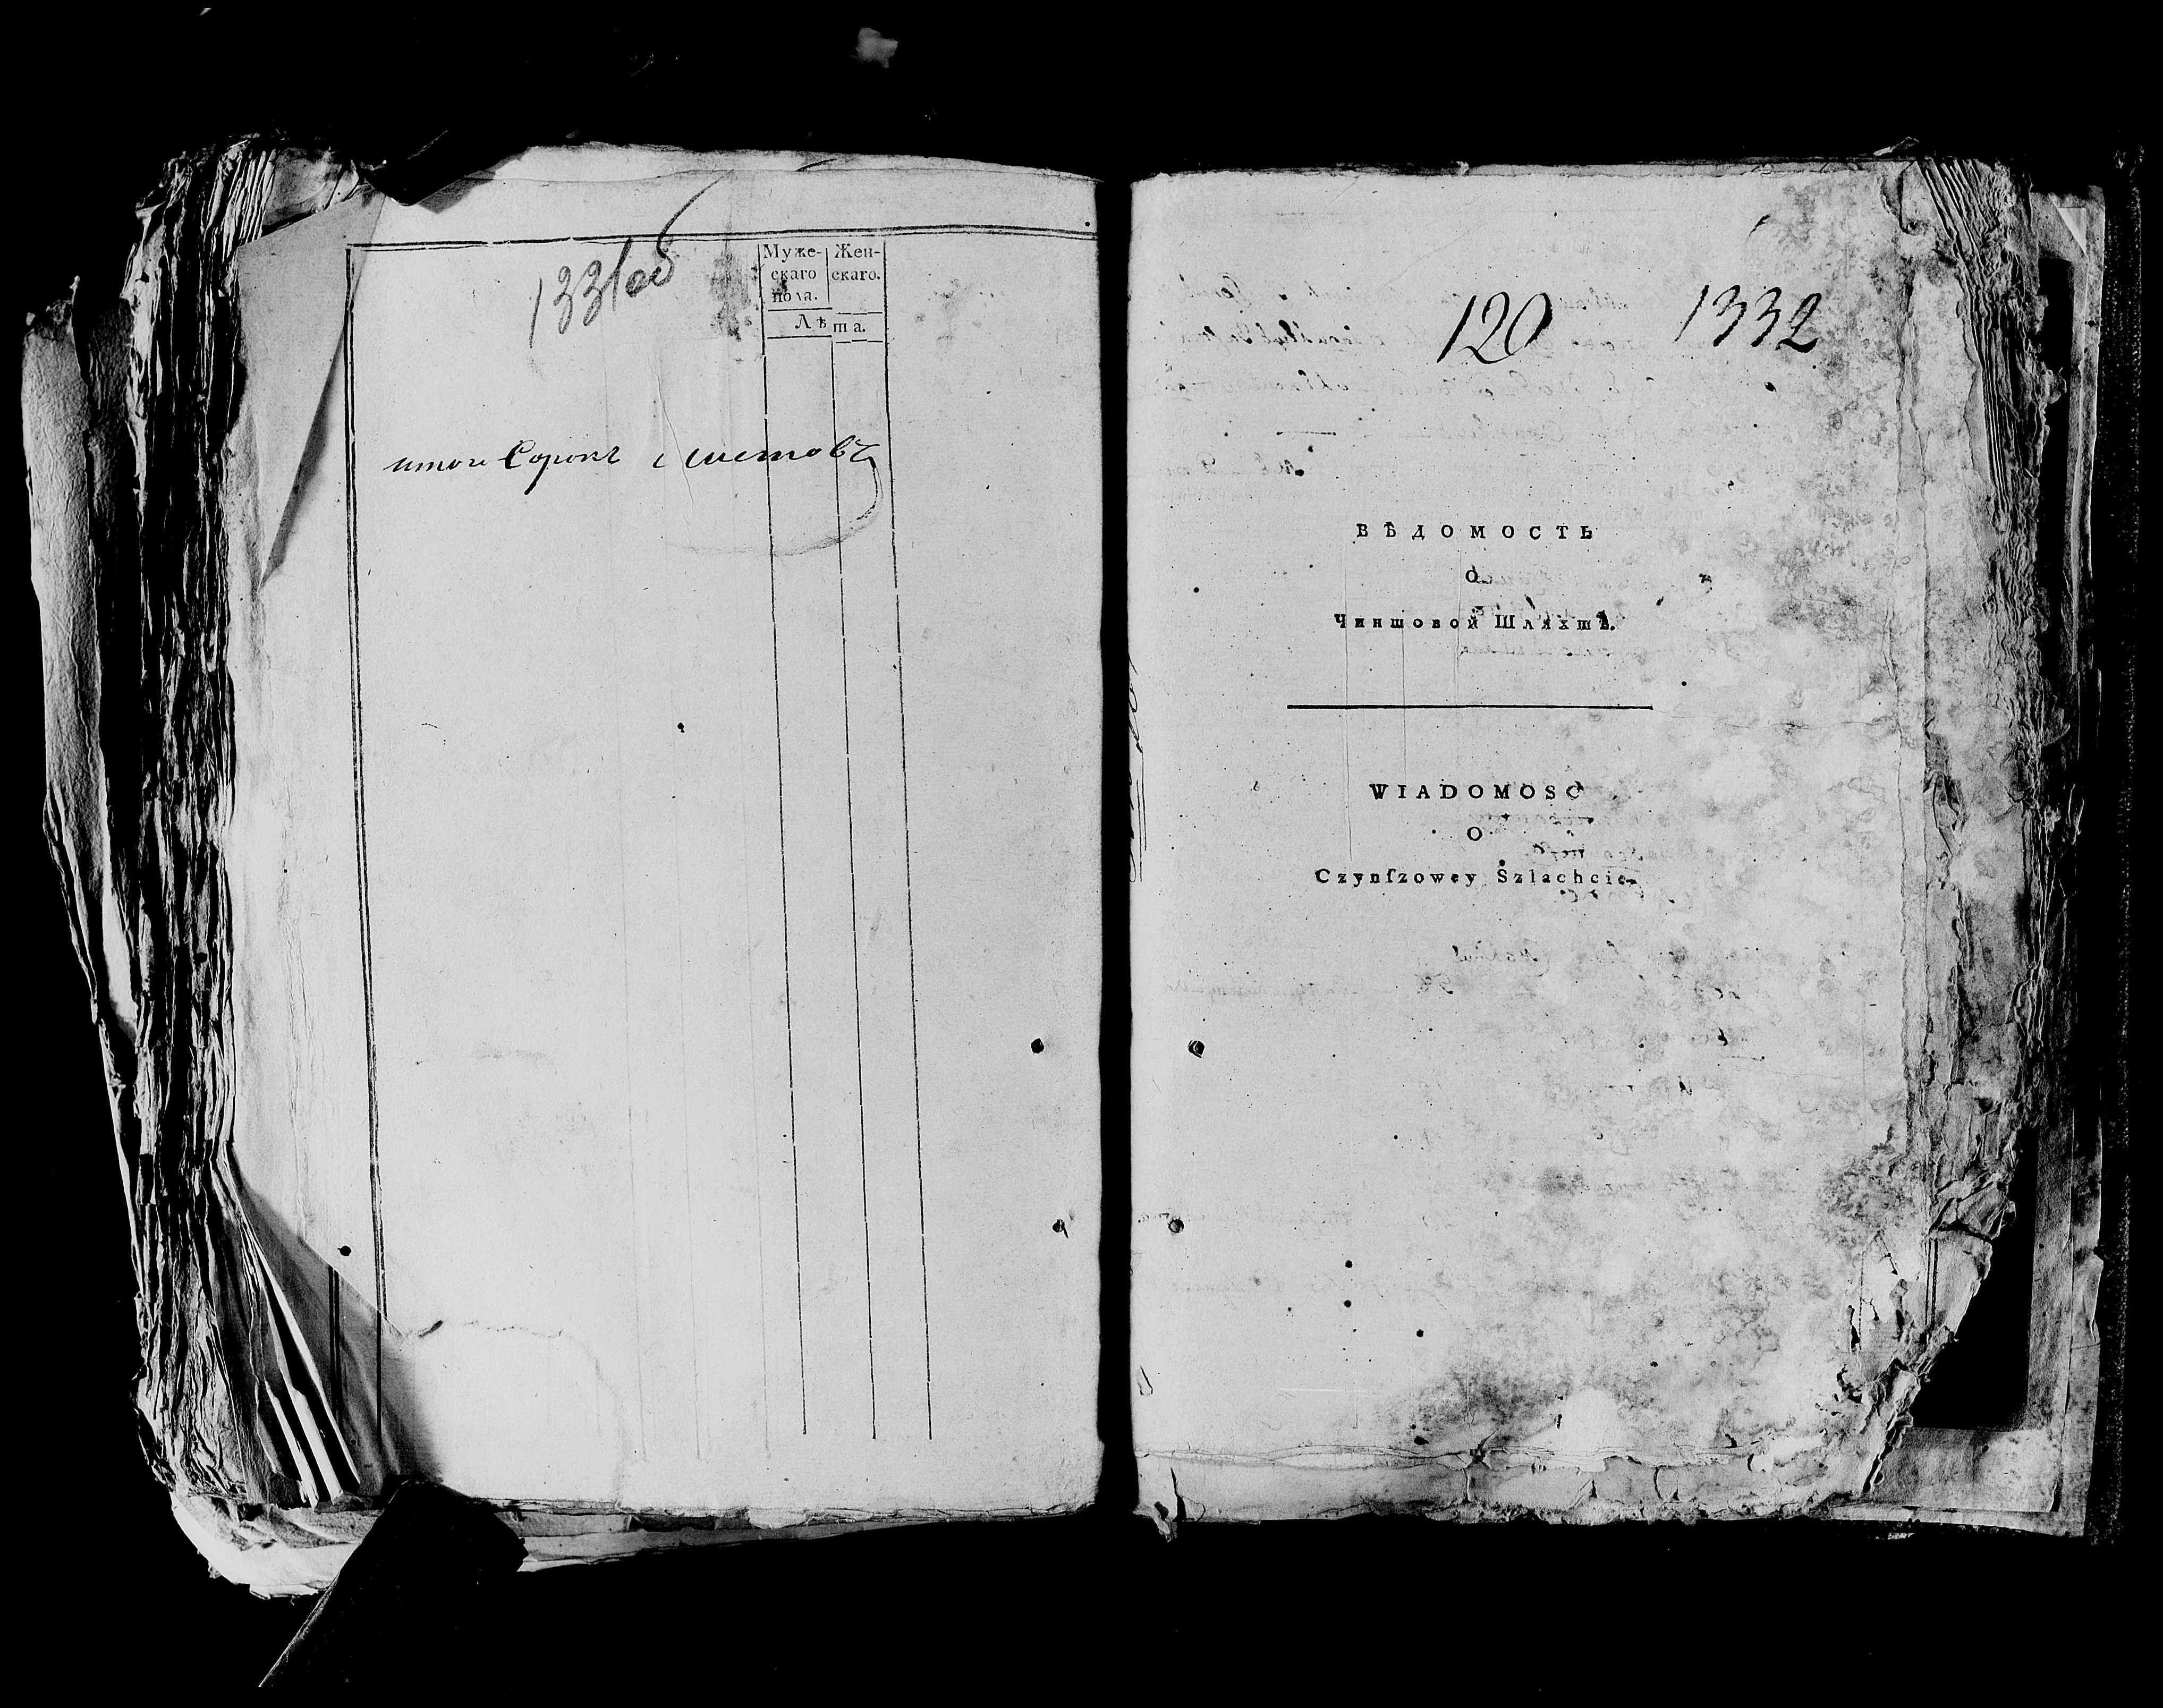 1331об
Муже-
скаго
пола.
Жен-
скаго.
Лѣта.
итого Сорокъ листовъ
120
1332
ВѢДОМОСТЬ
О
Чиншовой Шляхтѣ.
WIADOMOSC
O
Czynſzowey Szlachcie.